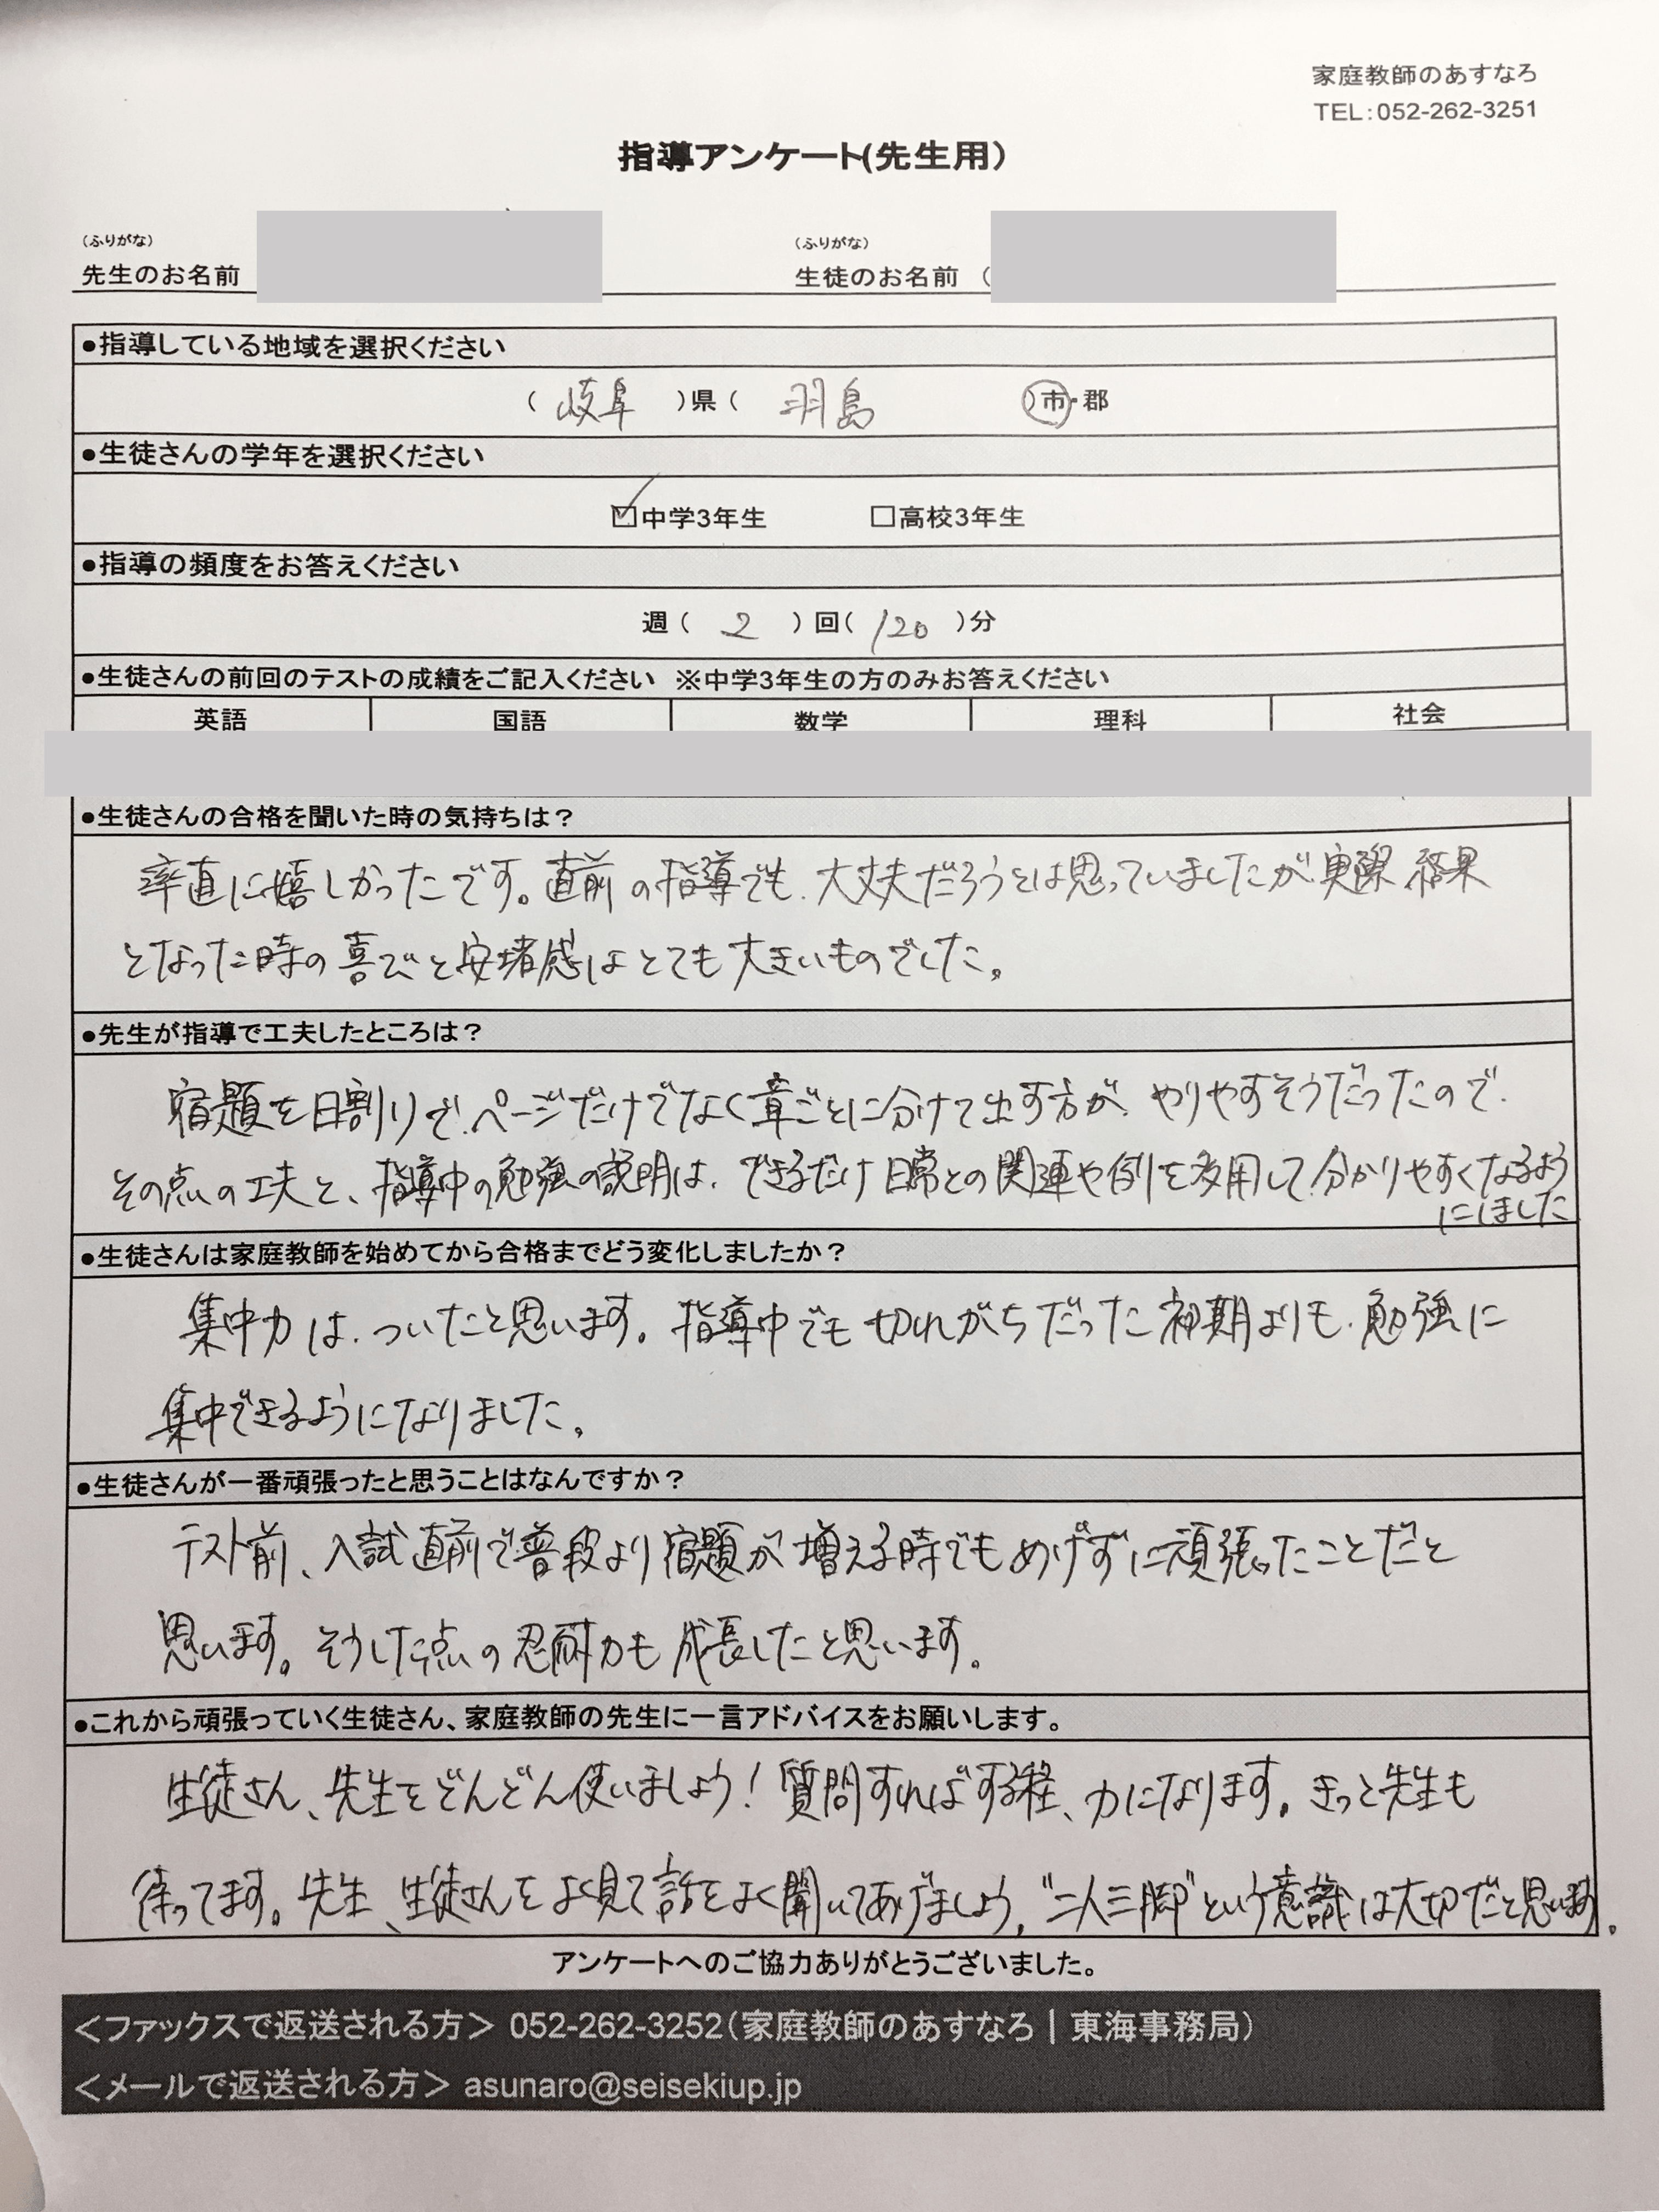 家庭教師のあすなろ
TEL:052-262-3251
指導アンケート(先生用)
(ふりがな) (ふりがな)
先生のお名前 生徒のお名前 (
●指導している地域を選択ください
( 岐阜 )県( 羽島 )市・郡
●生徒さんの学年を選択ください
☑中学3年生 □高校3年生
●指導の頻度をお答えください
週( 2 )回( 120 )分
●生徒さんの前回のテストの成績をご記入ください ※中学3年生の方のみお答えください
英語 国語 数学 理科 社会
●生徒さんの合格を聞いた時の気持ちは?
率直に嬉しかったです。直前の指導でも、大丈夫だろうとは思っていましたが実際結果
となった時の喜びと安堵感はとても大きいものでした。
●先生が指導で工夫したところは?
宿題を日割りで、ページだけでなく章ごとに分けて出す方が、やりやすそうだったので、
その点の工夫と、指導中の勉強の説明は、できるだけ日常との関連や例を多用して分かりやすくなるよう
にしました
●生徒さんは家庭教師を始めてから合格までどう変化しましたか?
集中力は、ついたと思います。指導中でも切れがちだった初期よりも、勉強に
集中できるようになりました。
●生徒さんが一番頑張ったと思うことはなんですか?
テスト前、入試直前で普段より宿題が増える時でもめげずに頑張ったことだと
思います。そうした点の忍耐力も成長したと思います。
●これから頑張っていく生徒さん、家庭教師の先生に一言アドバイスをお願いします。
生徒さん、先生をどんどん使いましょう!質問すればする程、力になります。きっと先生も
待ってます。先生、生徒さんをよく見て話をよく聞いてあげましょう。"二人三脚"という意識は大切だと思います。
アンケートへのご協力ありがとうございました。
<ファックスで返送される方> 052-262-3252(家庭教師のあすなろ|東海事務局)
<メールで返送される方> asunaro@seisekiup.jp